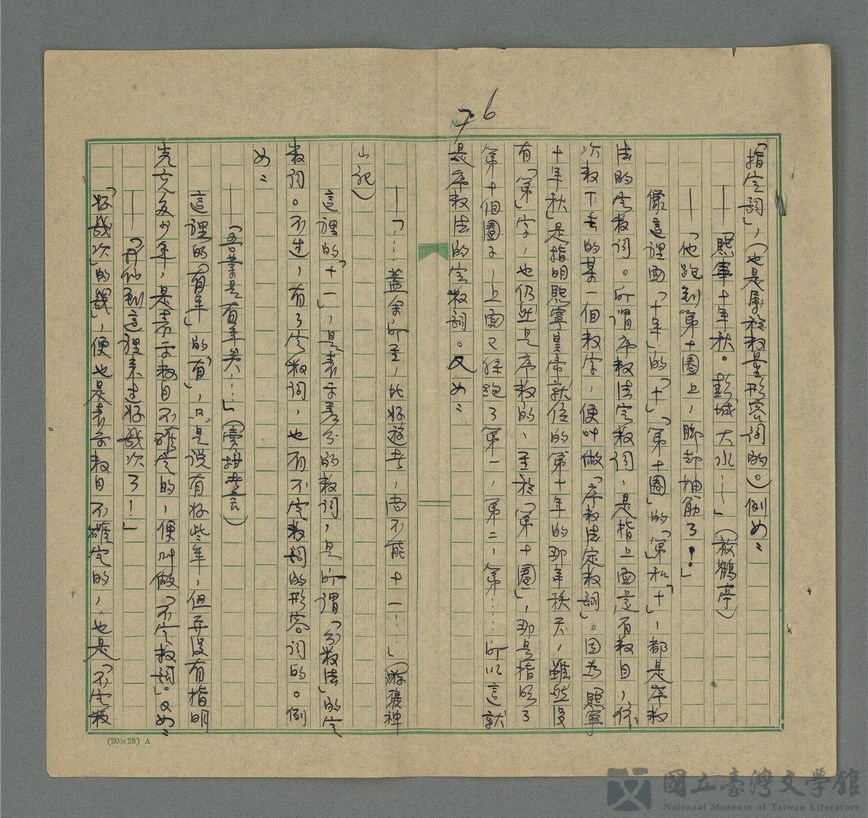 76
「指定詞」，(也是屬於數量形容詞的。)例如：
——「熙寧十年秋。彭城大水……」(放鶴亭)
——「他跑到第十圈上，腳却抽筋了！」
像這裡面「十年」的「十」，「第十圈」的「第」和「十」，都是序數
法的定數詞。所謂序數法定數詞，是指上面還有數目，依
次數下去的某一個數字，便叫做「序數法定數詞」。因為熙寧
十年秋」是指明熙寧皇帝就位的第十年的那年秋天，雖然沒
有「第」字，也仍然是序數的，至於「第十圈」，那是指明了
第十個圈子，上面又經跑了第一，第二，第……所以這就
是序數法的定數詞。又如：
——「……蓋余所至，比好遊者，尚不能十一……」(遊褒禪
山記)
這裡的「十一」，是表示差分的數詞，是所謂「分數法」的定
數詞。不過，有了定數詞，也有不定數詞的形容詞的。例
如：
——「吾業是有年矣……」(賣柑者言)
這裡的「有年」的「有」，只是說有好些年，但並沒有指明
究竟多少年，是表示數目不確定的，便叫做「不定數詞」。又如：
——「他到這裡來過好幾次了！」
「好幾次」的「幾」，便也是表示數目不確定的，也是「不定數
(20×25) A
國立臺灣文學館
National Museum of Taiwan Literature